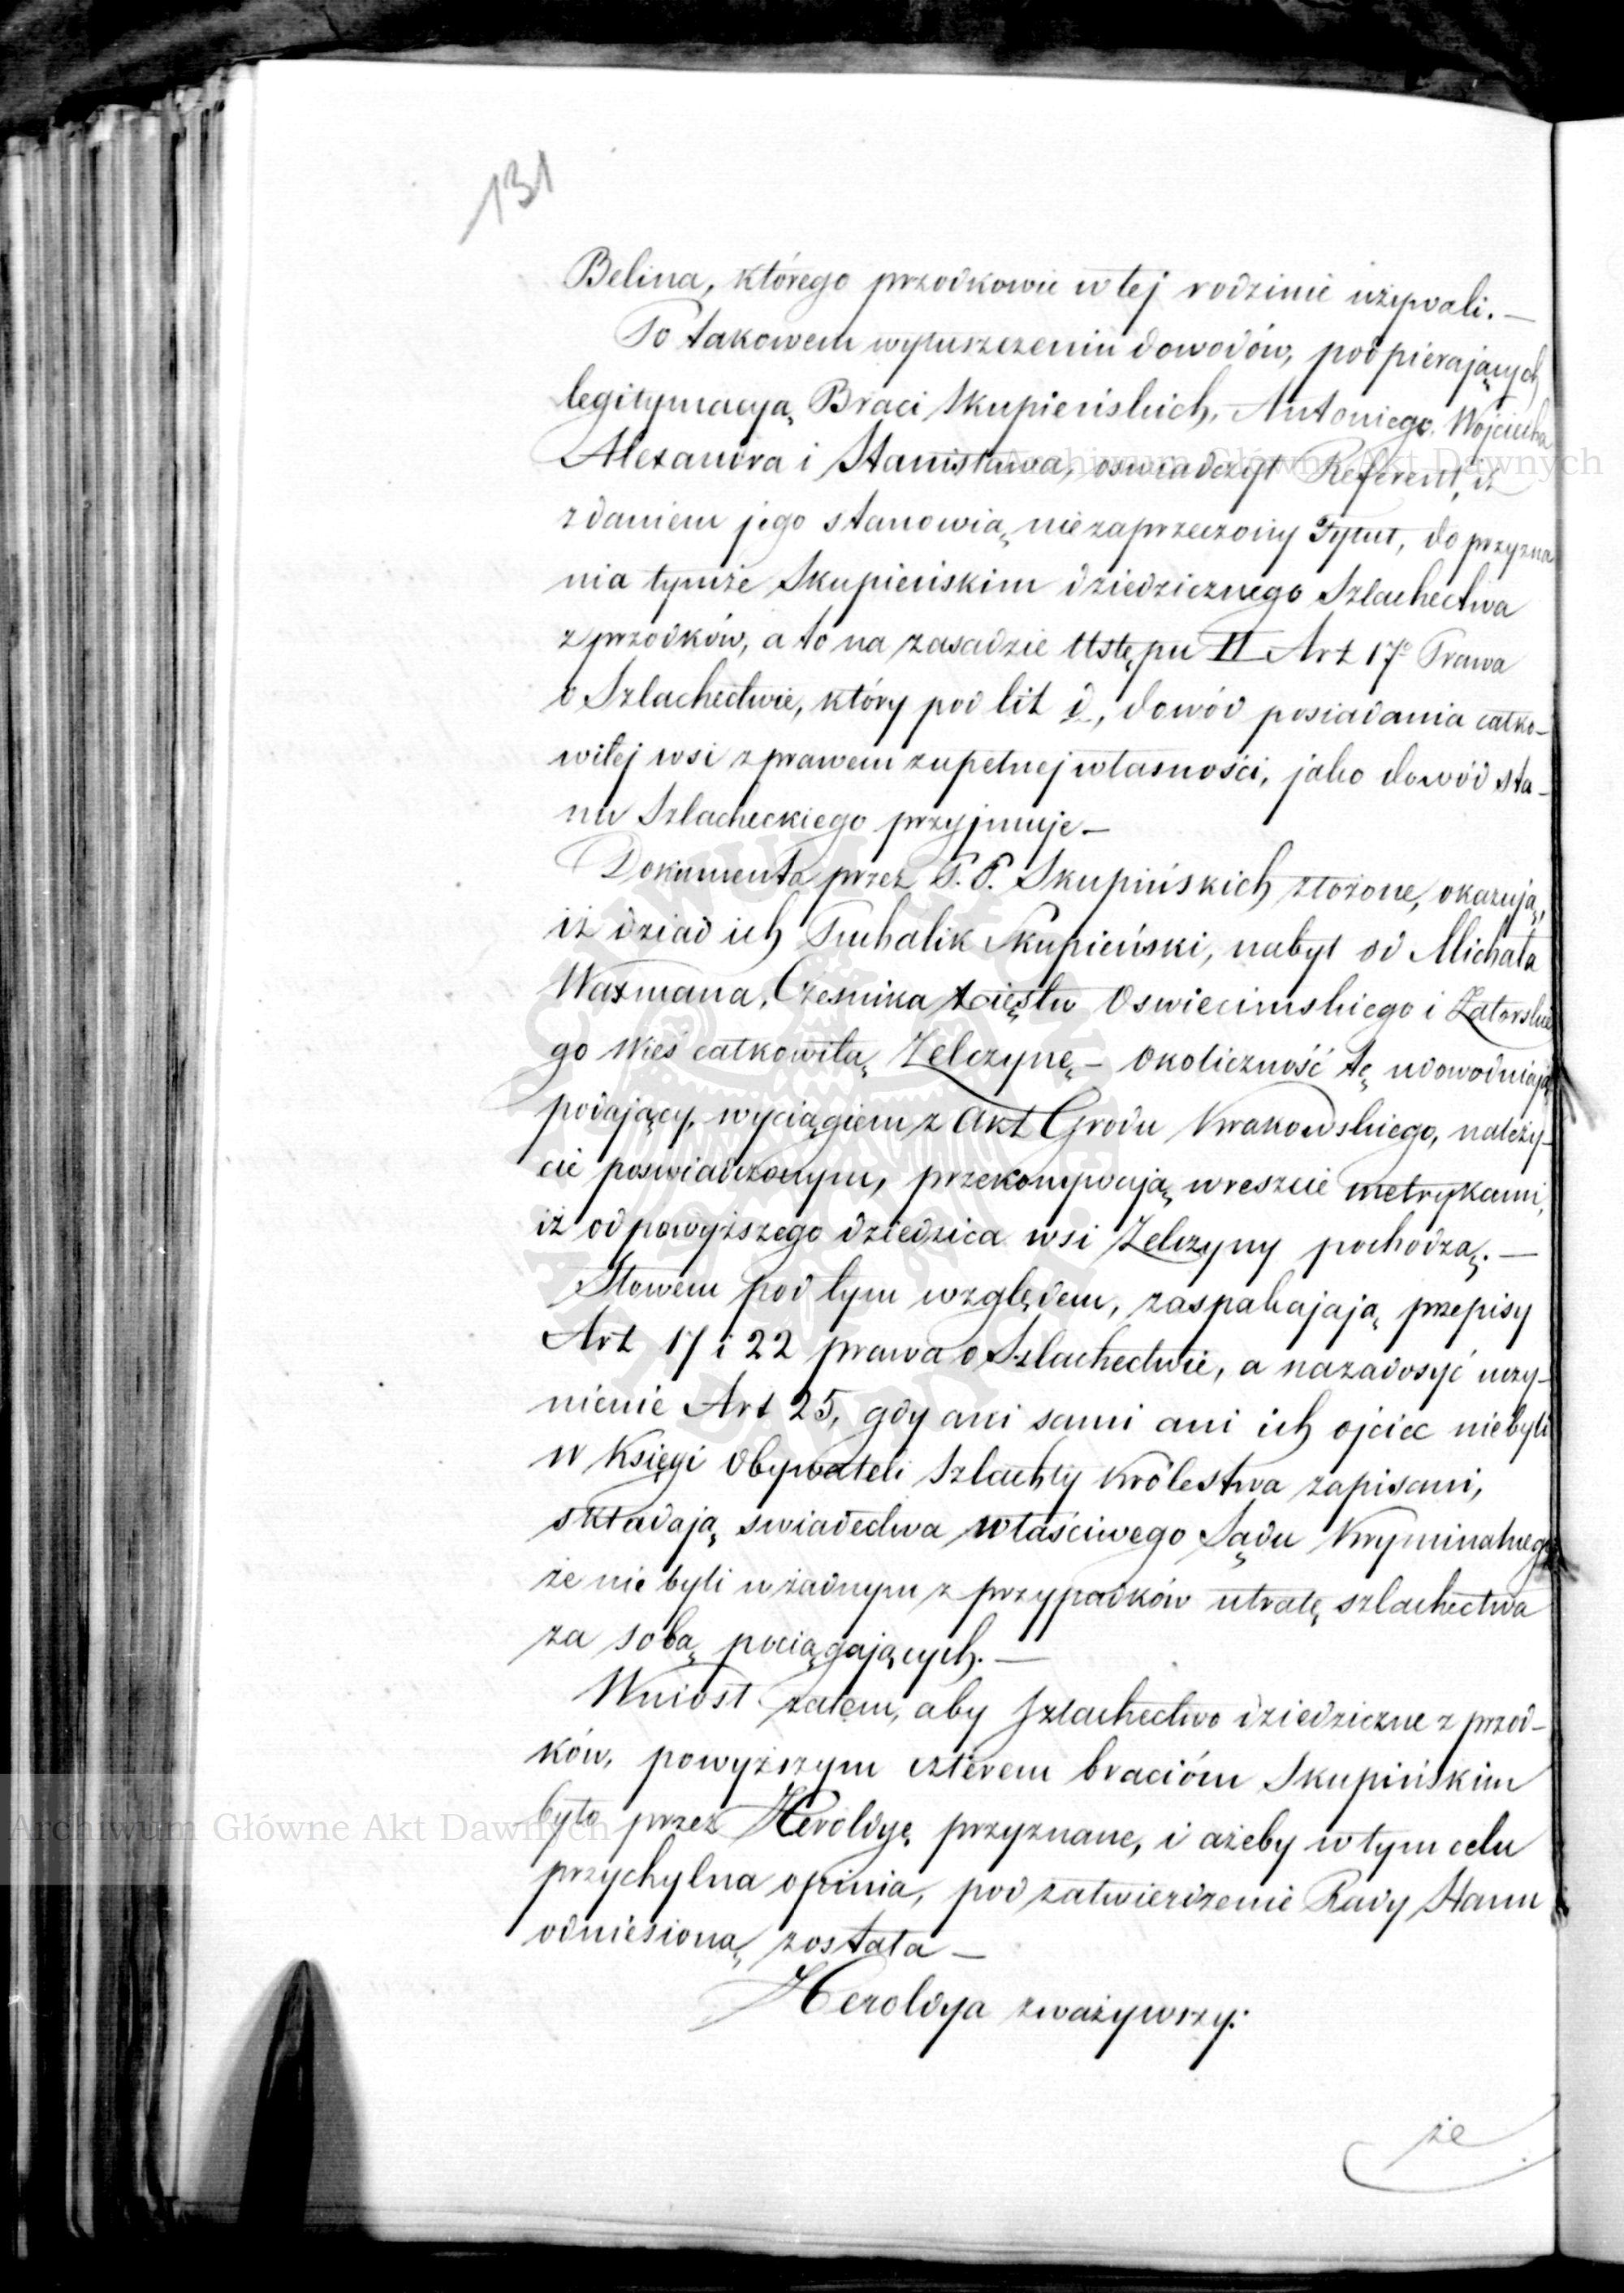 131
Belina, którego przodkowie w tej rodzinie używali. —
Po takowem wyłuszczeniu dowodów, podpierających
legitymacyą Braci Skupieńskich, Antoniego, Wojciecha
Alexandra i Stanisława, oswiadczył Referent, iż
zdaniem jego stanowią niezaprzeczony Tytuł, do przyzna
nia tymże Skupieńskim dziedzicznego Szlachectwa
z przodków, a to na zasadzie Ustępu II Art 17º Prawa
o Szlachectwie, który pod lit d, dowód posiadania całko-
witej wsi z prawem zupełnej własności, jako dowód sta-
nu Szlacheckiego przyjmuje —
Dokumenta przez P. P. Skupińskich złożone, okazują,
iż dziad ich Skupieński, nabył od Michała
Waxmana, Czesnika Xięstw Oswiecimskiego i Zatorskie
go Wieś całkowitą Zelczynę — Okoliczność tę udowodniają
podający, wyciągiem z Akt Grodu Krakowskiego, należy-
cie poswiadczonym, przekonywają wreszcie metrykami,
iż od powyższego dziedzica wsi Zelczyny pochodzą. —
Słowem pod tym względem, zaspakajają przepisy
Art 17 i 22 prawa o Szlachectwie, a na zadosyć uczy-
nienie Art 25, gdy ani sami ani ich ojciec niebyli
w Księgi Obywateli Szlachty Królestwa zapisani,
składają swiadectwa właściwego Sądu Kryminalnego
że nie byli w żadnym z przypadków utratę szlachectwa
za sobą pociągających. —
Wniósł zatem, aby Szlachectwo dziedziczne z przod-
ków, powyższym czterem braciom Skupińskim
było przez Heroldyę przyznane, i ażeby w tym celu
przychylna opinia, pod zatwierdzenie Rady Stanu
odniesioną została —
Heroldya zważywszy:
że
Archiwum Główne Akt Dawnych
Archiwum Główne Akt Dawnych